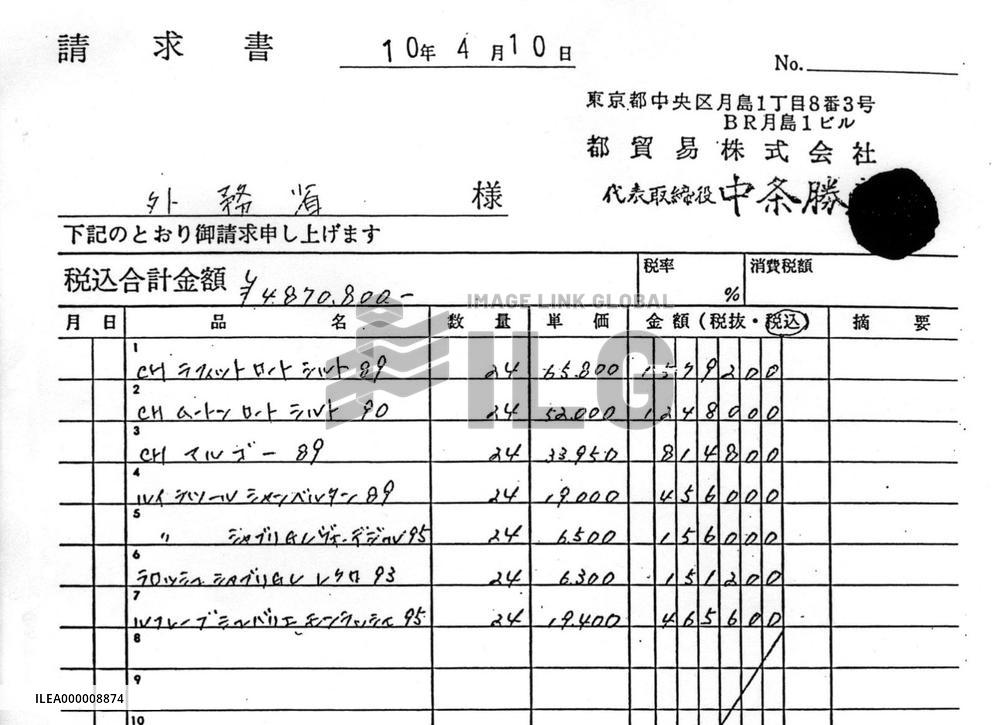 請求書 10年4月10日 No.
東京都中央区月島1丁目8番3号
BR月島1ビル
都貿易株式会社
代表取締役 中条勝
外務省 様
下記のとおり御請求申し上げます
税込合計金額 ¥4,870,800- 税率 % 消費税額
月 日 品名 数量 単価 金額(税抜・税込) 摘要
1 CH ラフィット ロート シルト 89 24 65.800 1579200
2 CH ムートン ロート シルト 90 24 52.000 1248000
3 CH マルゴー 89 24 33.950 814800
4 ルイ ラツール シャンベルタン 89 24 19.000 456000
5 〃 シャブリ 95 24 6.500 156000
6 ラロッシュ シャブリ レクロ 93 24 6.300 151200
7 ルフレーブ シュバリエ モンラッシェ 95 24 19.400 465600
8
9
10
IMAGE LINK GLOBAL
ILG
ILEA000008874